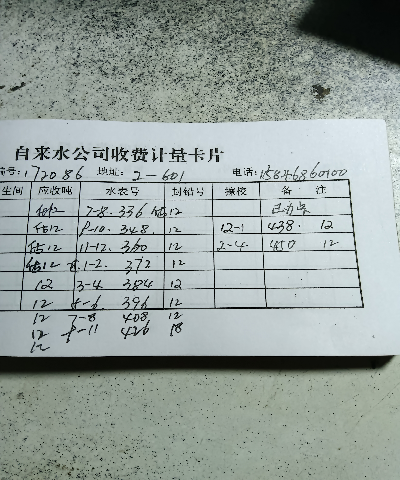 自来水公司收费计量卡片
号: 172086 地址: 2-601 电话:
生间 应收吨 水表号 封铅号 换校 备 注
估12 7-8. 336 估12
估12 9-10. 348. 12 12-1 438. 12
估12 11-12. 360 12 2-4. 450 12
估12 1-2. 372 12
12 3-4 384 12
12 5-6. 396 12
12 7-8 408 12
12 9-11 426 18
12